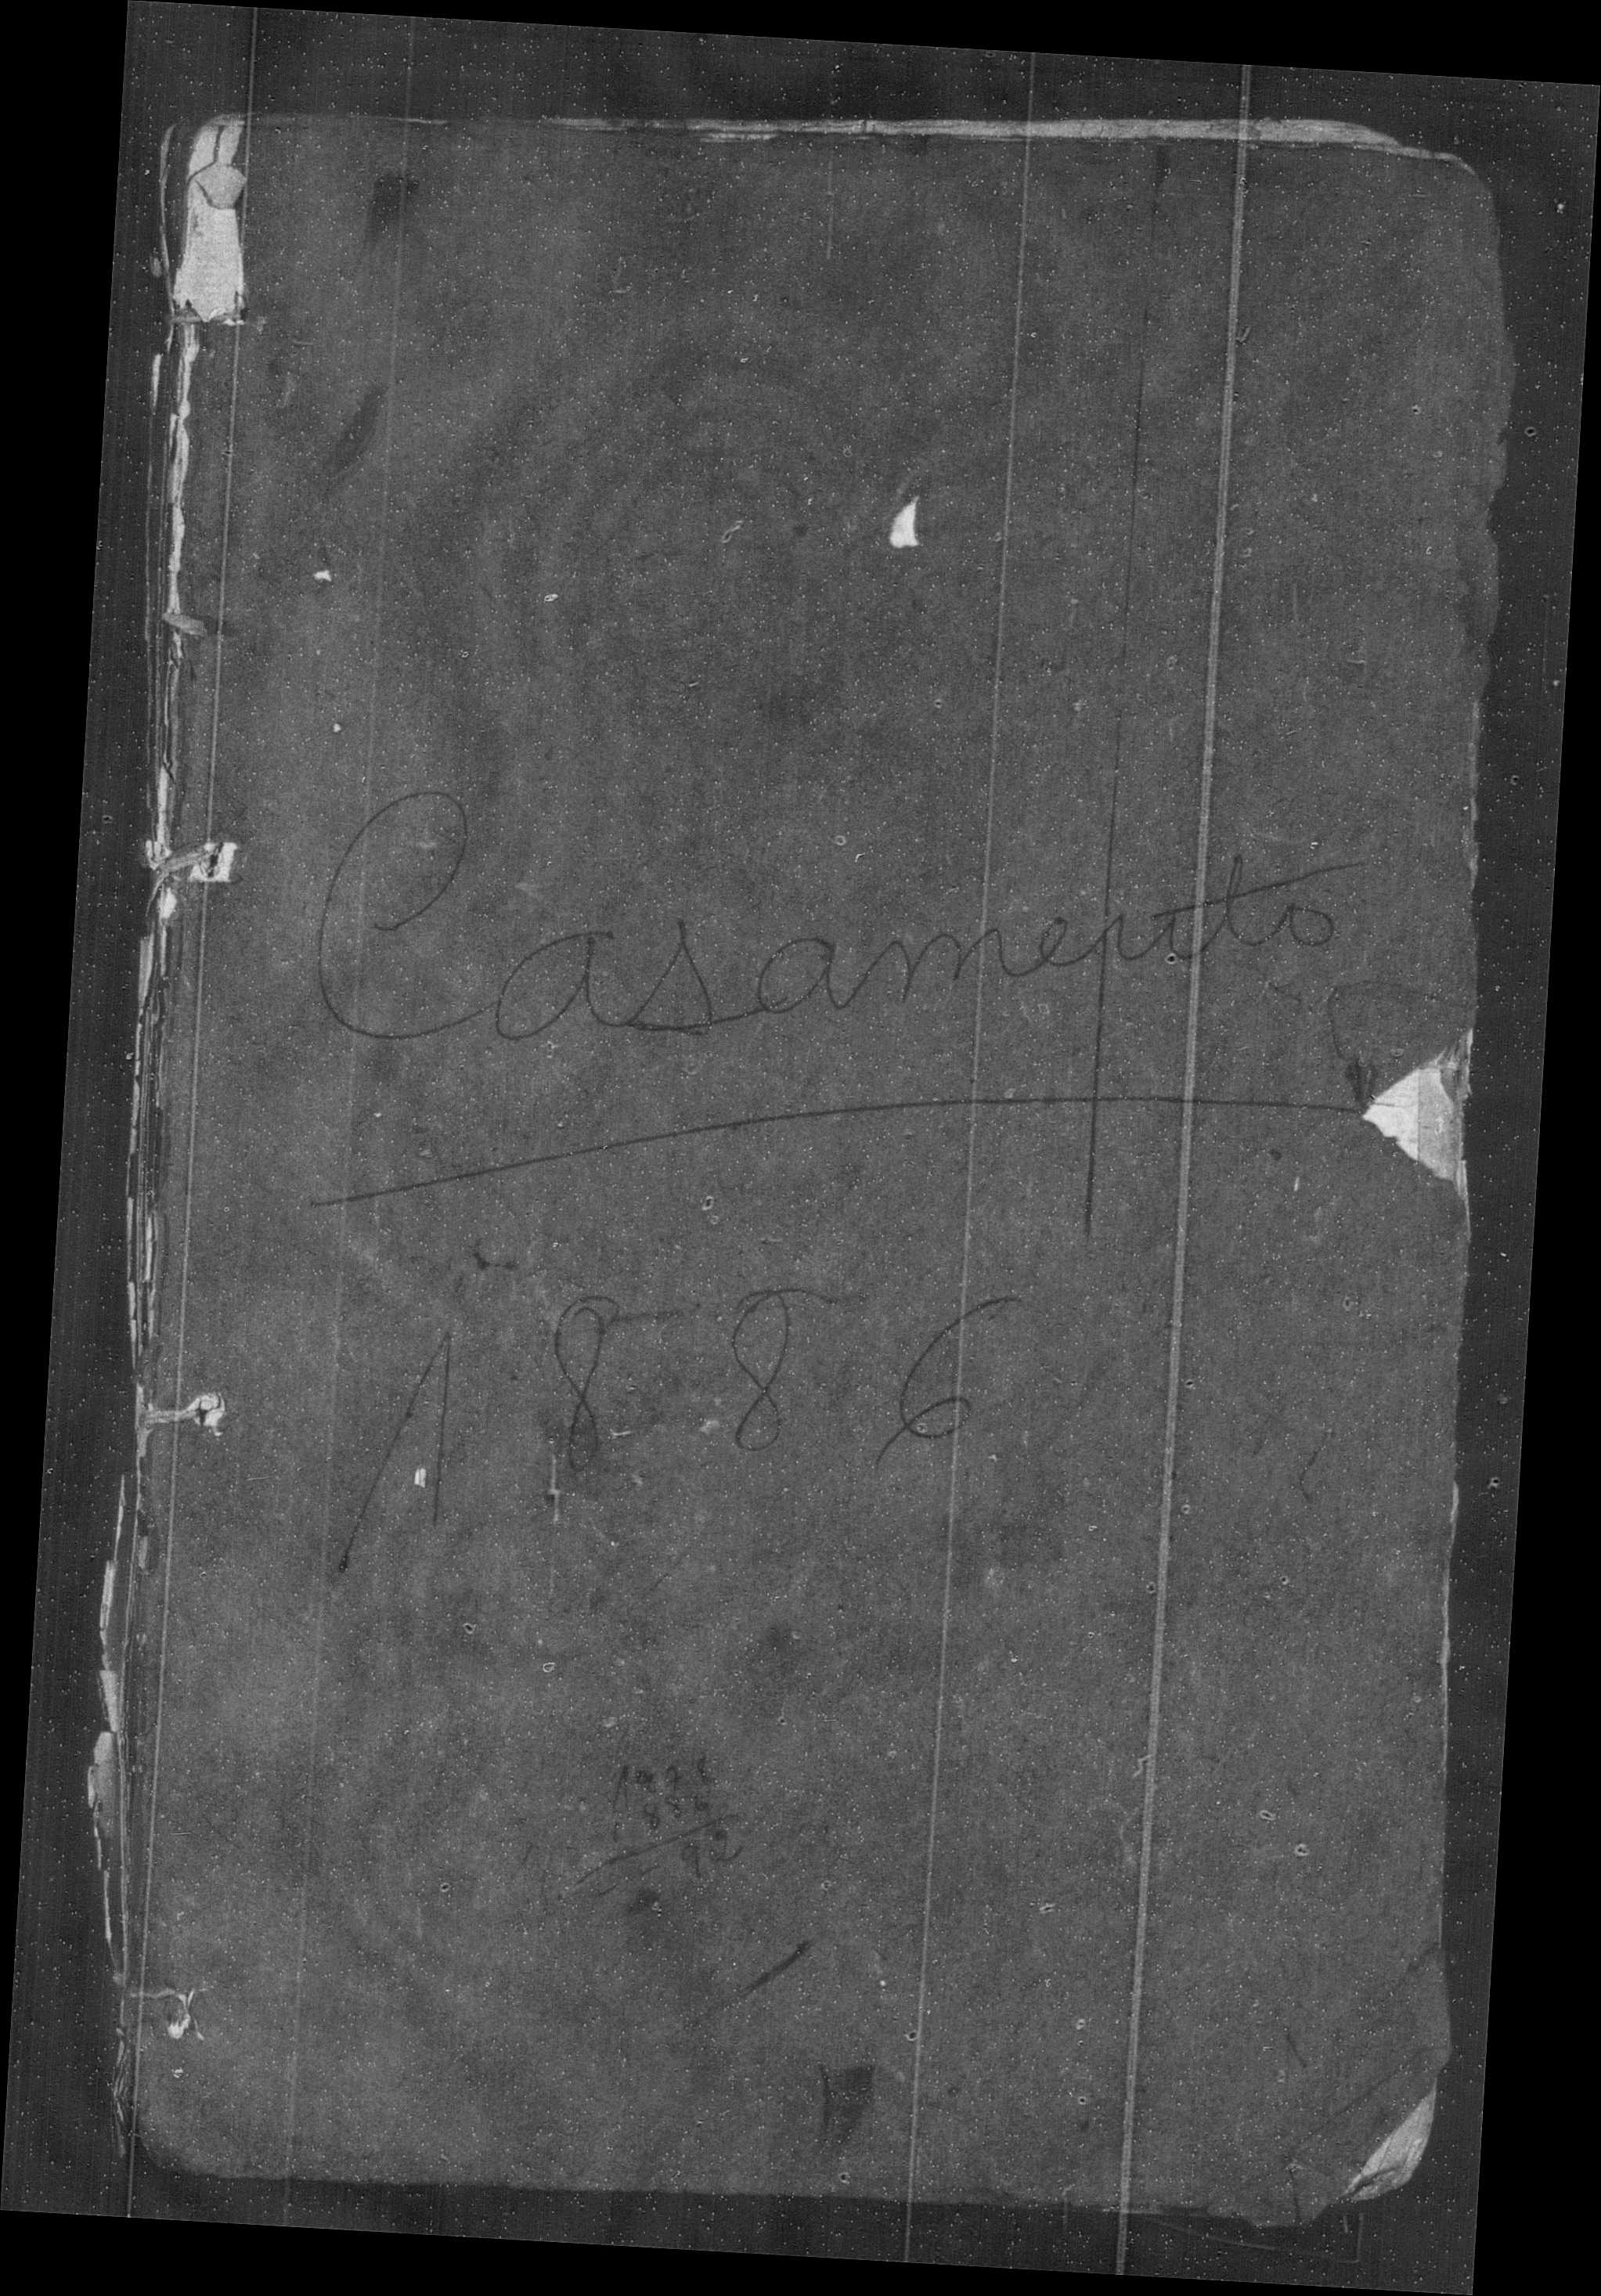 Casamento
1886
1978
1886
92